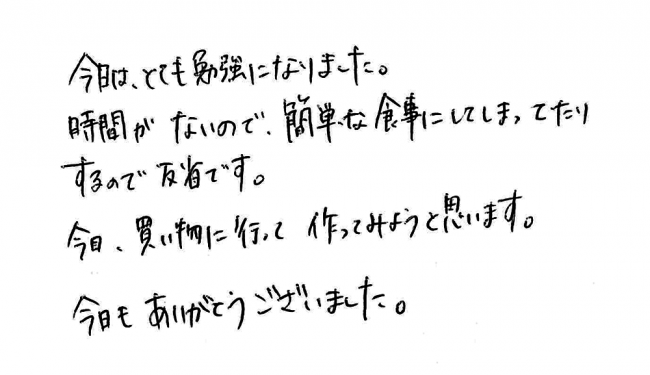 今日は、とても勉強になりました。
時間が ないので、簡単な食事にしてしまってたり
するので 反省です。
今日、買い物に行って 作ってみようと思います。
今日も ありがとうございました。